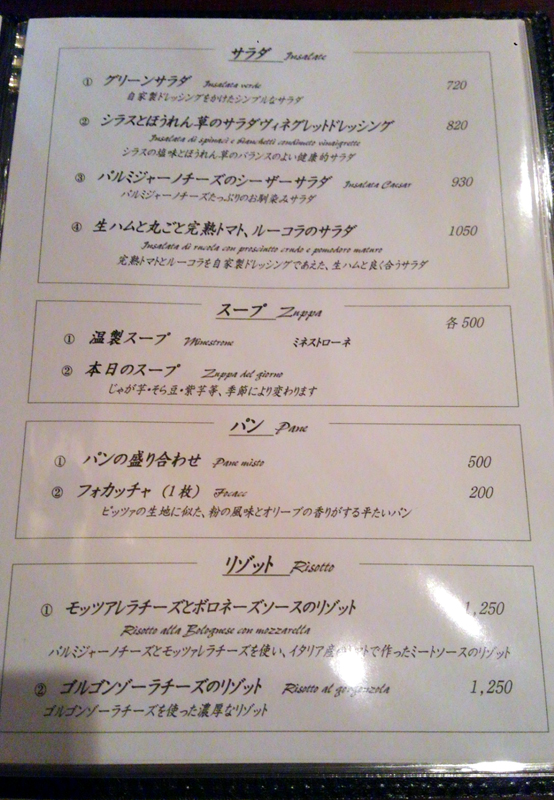 サラダ Insalate
① グリーンサラダ Insalata verde 720
自家製ドレッシングをかけたシンプルなサラダ
② シラスとほうれん草のサラダヴィネグレットドレッシング 820
Insalata di spinaci e bianchetti condimento vinaigrette
シラスの塩味とほうれん草のバランスのよい健康的サラダ
③ パルミジャーノチーズのシーザーサラダ Insalata Caesar 930
パルミジャーノチーズたっぷりのお馴染みサラダ
④ 生ハムと丸ごと完熟トマト、ルーコラのサラダ 1050
Insalata di rucola con prosciutto crudo e pomodoro maturo
完熟トマトとルーコラを自家製ドレッシングであえた、生ハムと良く合うサラダ
スープ Zuppa
各500
① 温製スープ Minestrone ミネストローネ
② 本日のスープ Zuppa del giorno
じゃが芋・そら豆・紫芋等、季節により変わります
パン Pane
① パンの盛り合わせ Pane misto 500
② フォカッチャ（1枚） Focacc 200
ピッツァの生地に似た、粉の風味とオリーブの香りがする平たいパン
リゾット Risotto
① モッツアレラチーズとボロネーズソースのリゾット 1,250
Risotto alla Bolognese con mozzarella
パルミジャーノチーズとモッツァレラチーズを使い、イタリア産 で作ったミートソースのリゾット
② ゴルゴンゾーラチーズのリゾット Risotto al gorgonzola 1,250
ゴルゴンゾーラチーズを使った濃厚なリゾット